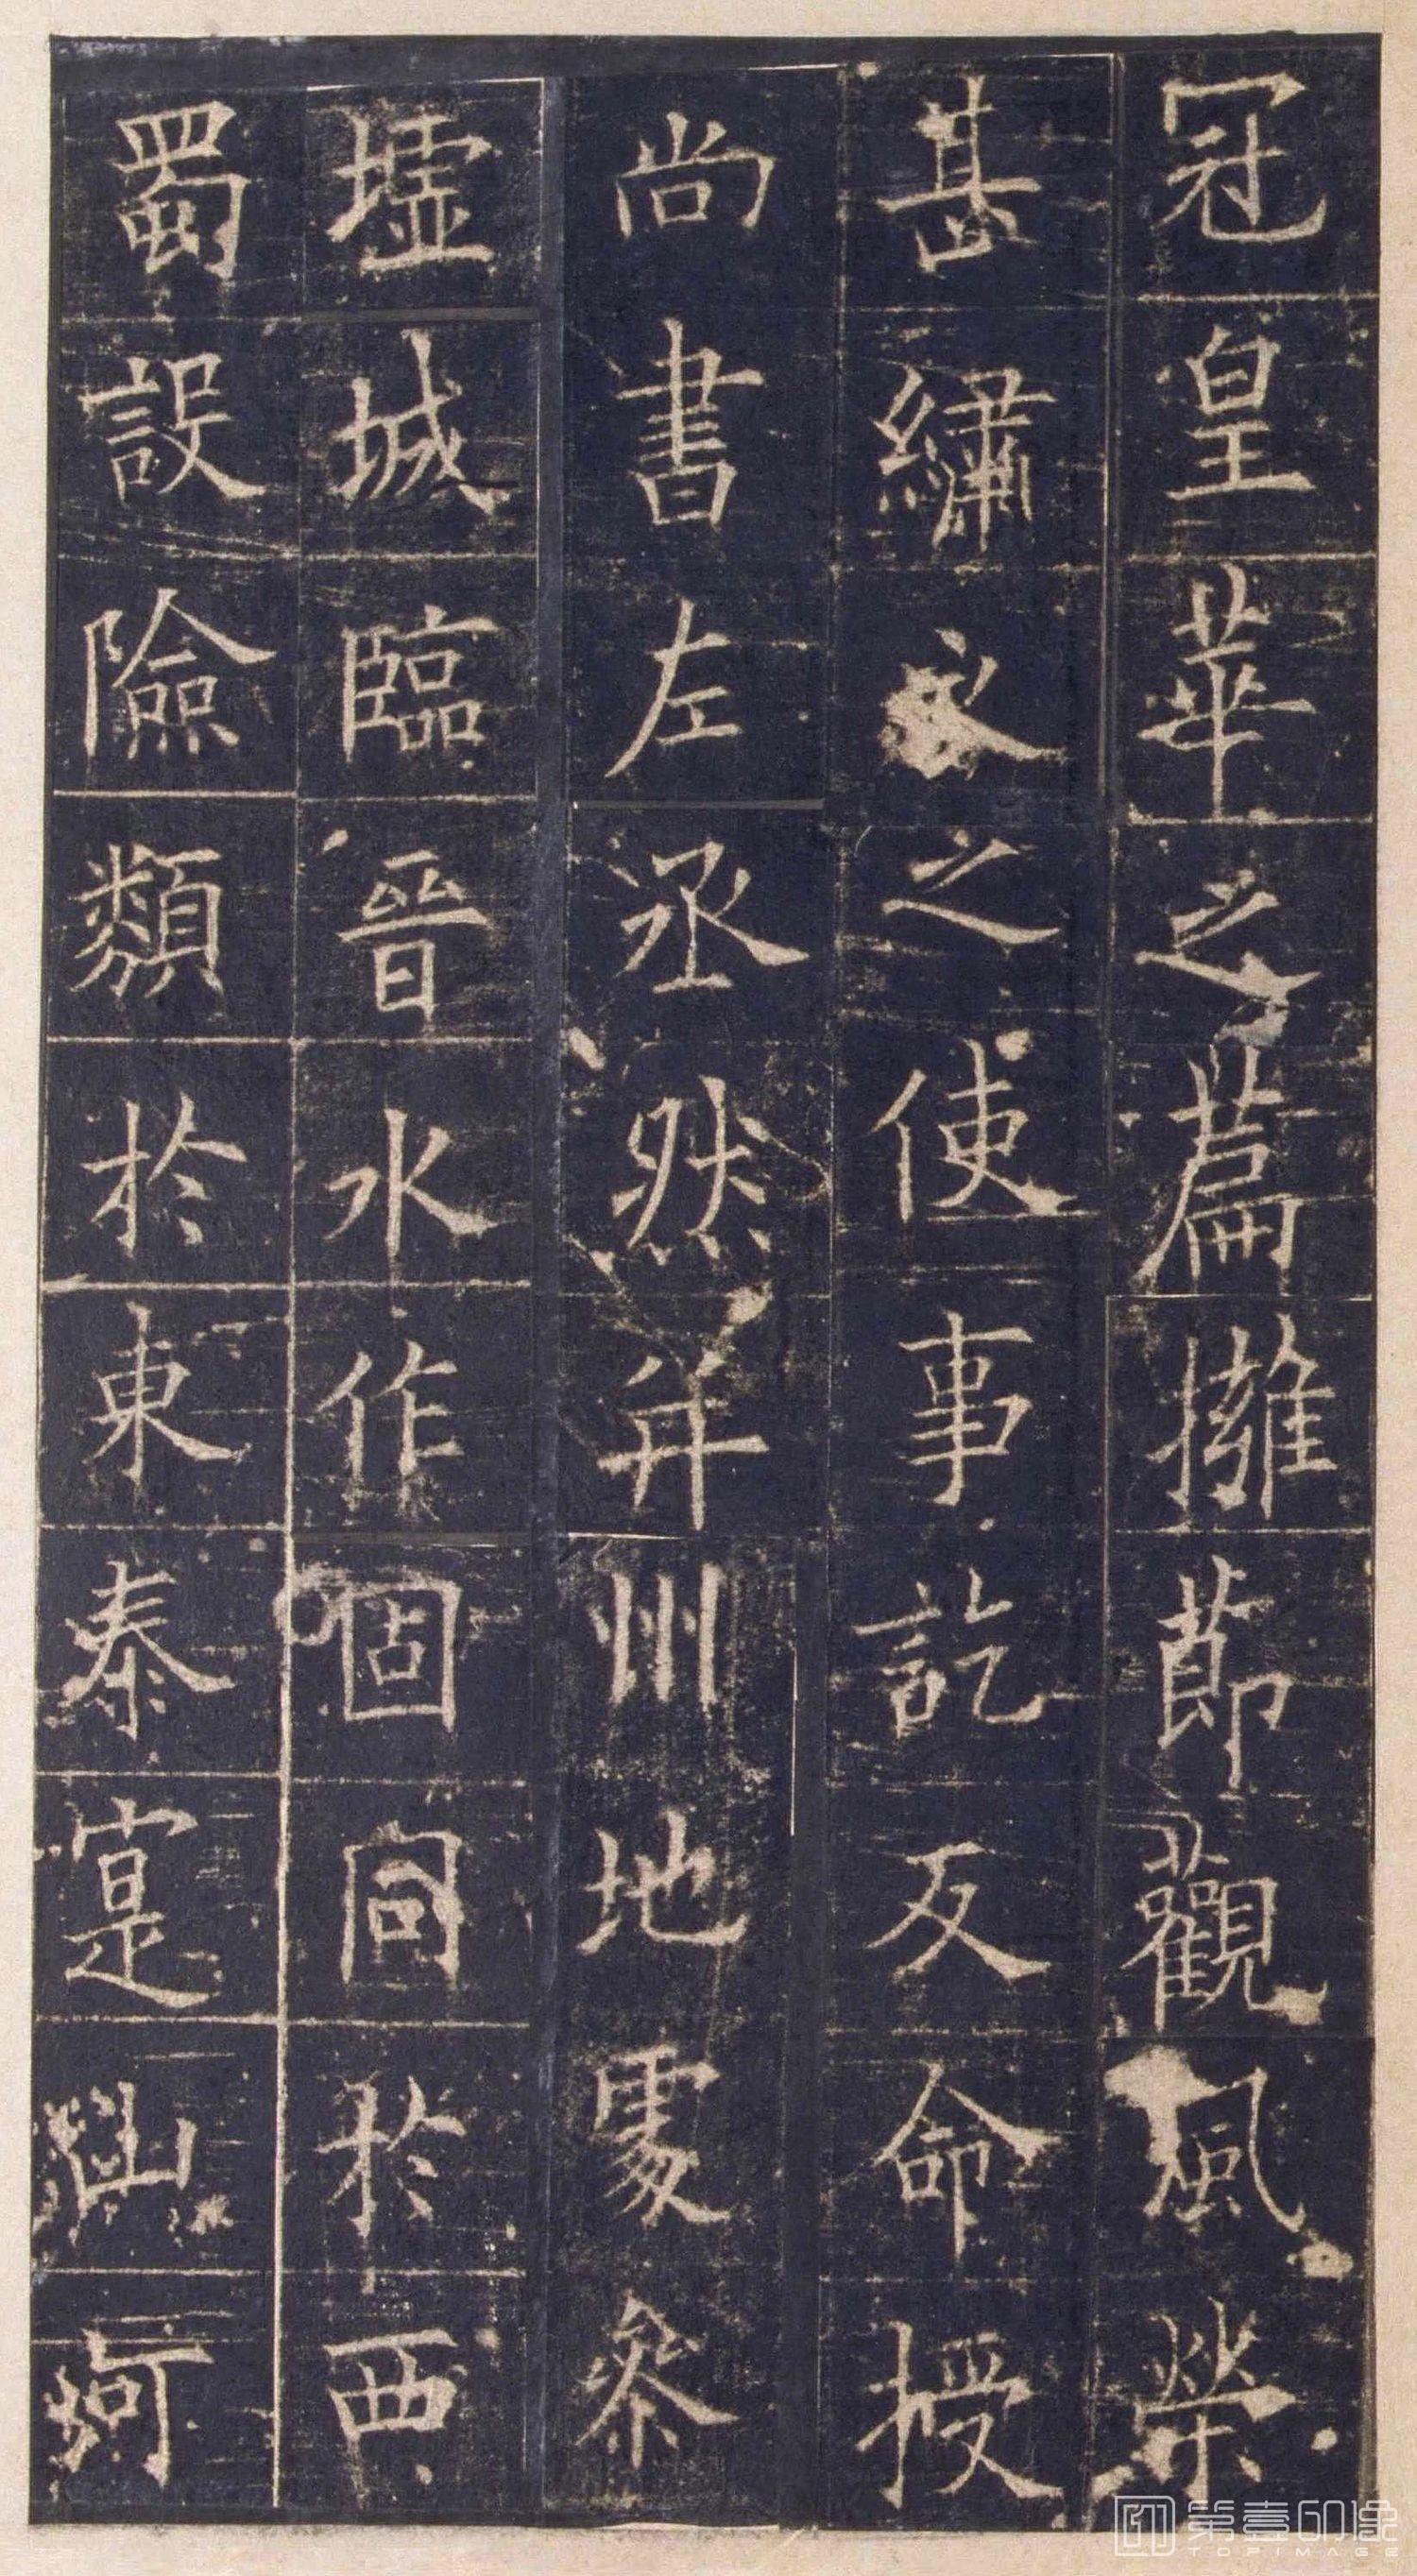 冠皇華之篇擁節觀風榮
甚繡衣之使事訖反命授
尚書左丞然并州地處參
墟城臨晉水作固同於西
蜀設險類於東秦寔山河
第壹印像
TOPIMAGE